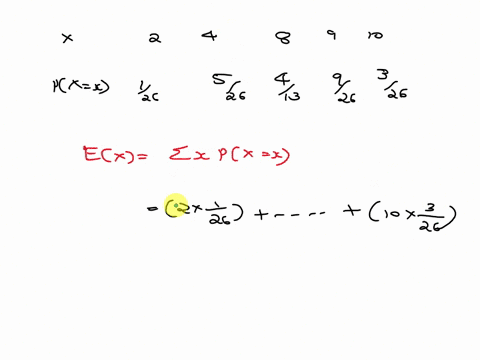 x 2 4 8 9 10
P(X=x) 1/26 5/26 4/13 9/26 3/26
E(X)= Σx P(X=x)
= (2×1/26) + ---- + (10×3/26)